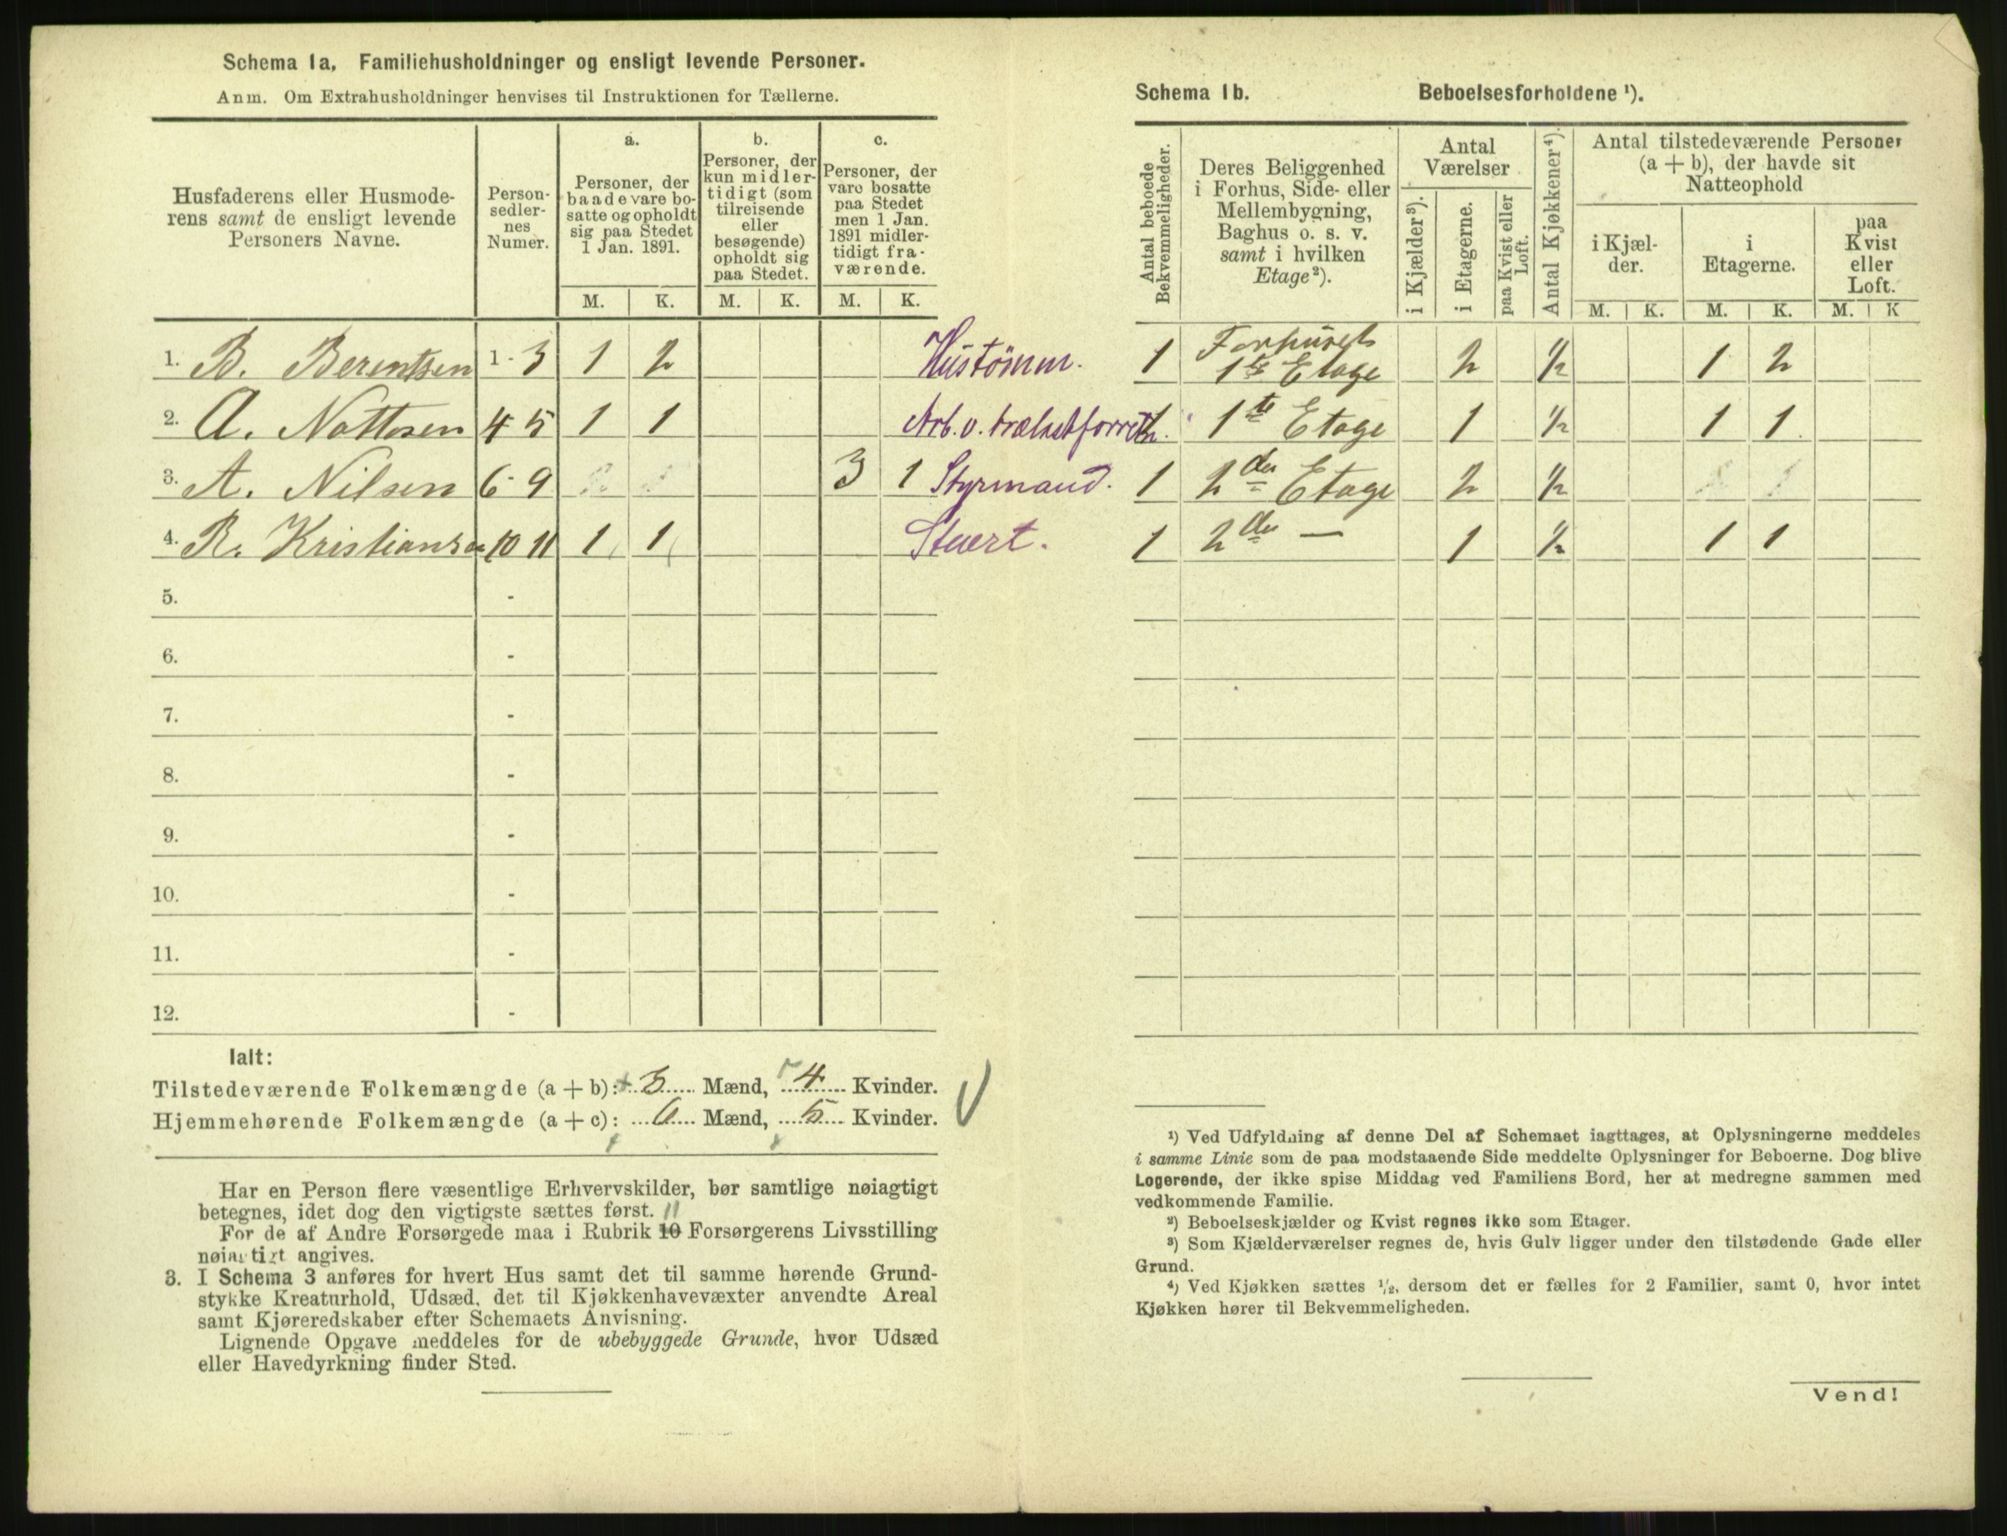 Schema 1a. Familiehusholdninger og ensligt levende Personer.
Anm. Om Extrahusholdninger henvises til Instruktionen for Tællerne.
Husfaderens eller Husmode-
rens samt de ensligt levende
Personers Navne.
Person-
sedler-
nes
Numer.
a.
Personer, der
baade vare bo-
satte og opholdt
sig paa Stedet
1 Jan. 1891.
b.
Personer, der
kun midler-
tidigt (som
tilreisende
eller
besøgende)
opholdt sig
paa Stedet.
c.
Personer, der
vare bosatte
paa Stedet
men 1 Jan.
1891 midler-
tidigt fra-
værende.
M. K. M. K. M. K.
1. B. Berentsen 1 - 3 1 2 Hustømm.
2. A. Nottosen 4 5 1 1 Arb. v.
3. A. Nilsen 6 - 9 3 1 Styrmand.
4. R. Kristiansen 10 11 1 1 Stuert.
5. -
6. -
7. -
8. -
9. -
10. -
11. -
12. -
Ialt:
Tilstedeværende Folkemængde (a + b): 3 Mænd, 4 Kvinder.
Hjemmehørende Folkemængde (a + c): 6 Mænd, 5 Kvinder.
Har en Person flere væsentlige Erhvervskilder, bør samtlige nøiagtigt
betegnes, idet dog den vigtigste sættes først. 11
For de af Andre Forsørgede maa i Rubrik 10 Forsørgerens Livsstilling
nøiagtigt angives.
3. I Schema 3 anføres for hvert Hus samt det til samme hørende Grund-
stykke Kreaturhold, Udsæd, det til Kjøkkenhavevæxter anvendte Areal
samt Kjøreredskaber efter Schemaets Anvisning.
Lignende Opgave meddeles for de ubebyggede Grunde, hvor Udsæd
eller Havedyrkning finder Sted.
Schema 1b. Beboelsesforholdene ¹).
Antal beboede
Bekvemmeligheder.
Deres Beliggenhed
i Forhus, Side- eller
Mellembygning,
Baghus o. s. v.
samt i hvilken
Etage²).
Antal
Værelser
i Kjælder³).
i Etagerne.
paa Kvist eller
Loft.
Antal Kjøkkener⁴).
Antal tilstedeværende Personer
(a + b), der havde sit
Natteophold
i Kjæl-
der.
i
Etagerne.
paa
Kvist
eller
Loft.
M. K. M. K. M. K
1 Forhusets
1ste Etage 2 ½ 1 2
1te Etage 1 ½ 1 1
1 2den Etage 2 ½
1 2den — 1 ½ 1 1
¹) Ved Udfyldning af denne Del af Schemaet iagttages, at Oplysningerne meddeles
i samme Linie som de paa modstaaende Side meddelte Oplysninger for Beboerne. Dog blive
Logerende, der ikke spise Middag ved Familiens Bord, her at medregne sammen med
vedkommende Familie.
²) Beboelseskjælder og Kvist regnes ikke som Etager.
³) Som Kjælderværelser regnes de, hvis Gulv ligger under den tilstødende Gade eller
Grund.
⁴) Ved Kjøkken sættes ½, dersom det er fælles for 2 Familier, samt 0, hvor intet
Kjøkken hører til Bekvemmeligheden.
Vend!